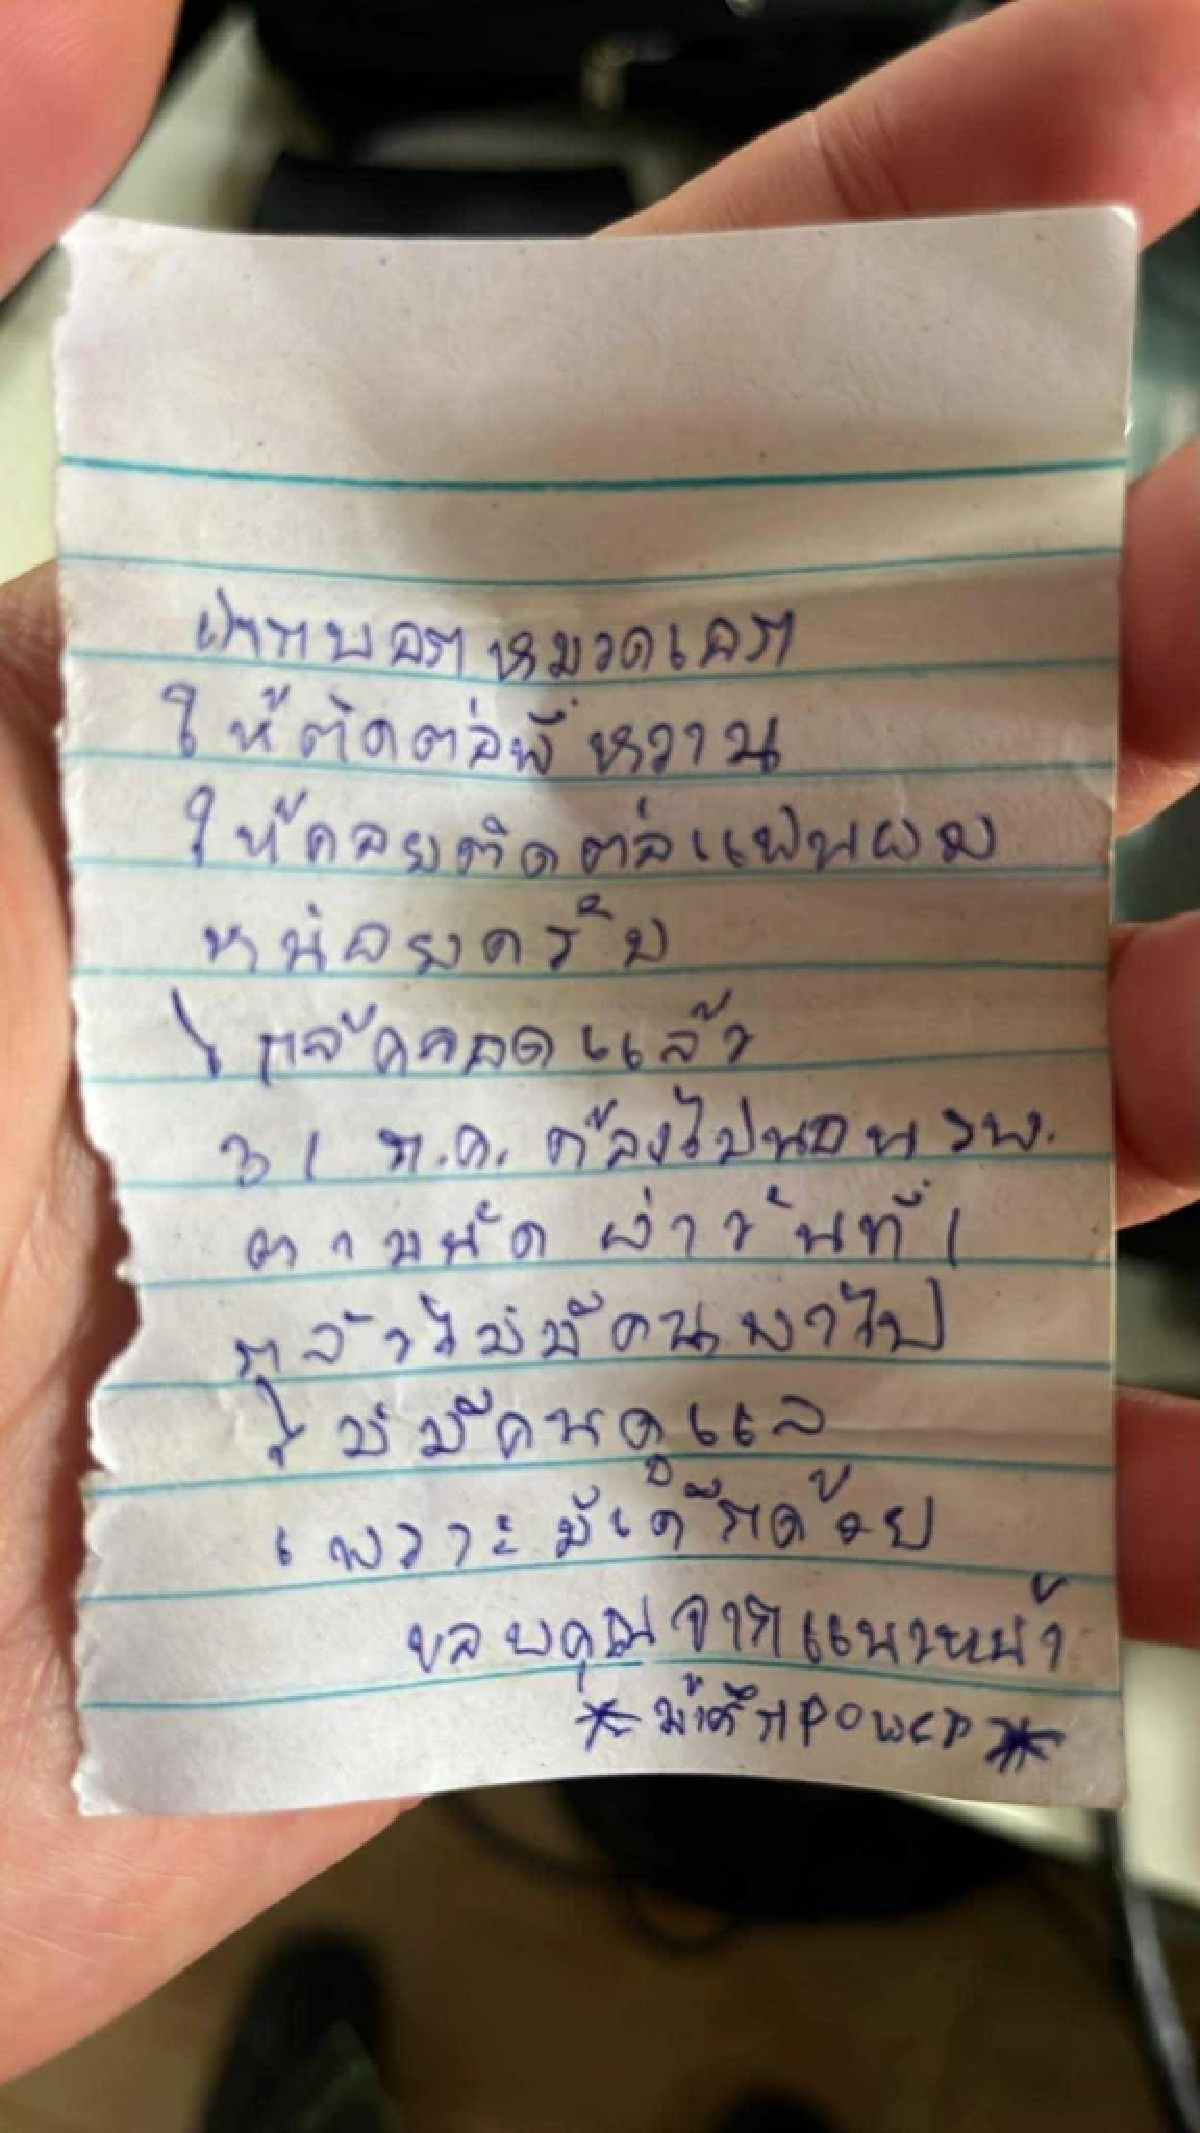 ฝากบอกหมวดเอก
ให้ติดต่อพี่หวาน
ให้คอยติดต่อแฟนผม
หน่อยครับ
ใกล้คลอดแล้ว
31 ก.ค. ต้องไปนอน รพ.
ตามนัด ผ่าวันที่ 1
กลัวไม่มีคนพาไป
ไม่มีคนดูแล
เพราะมีเด็กด้วย
ขอบคุณจากแนวหน้า
power